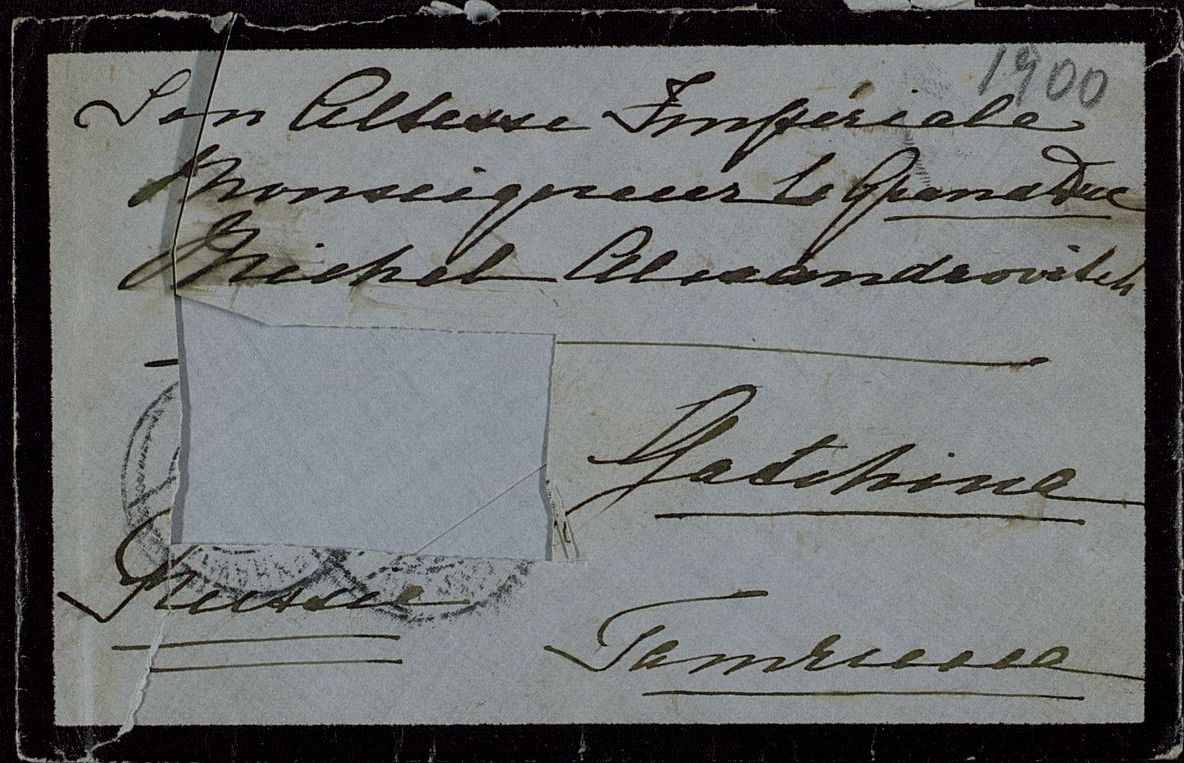 1900
Son Altesse Impériale
Monseigneur le Grand Duc
Michel Alexandrovitch
Gatchine
Russie
Гатчина